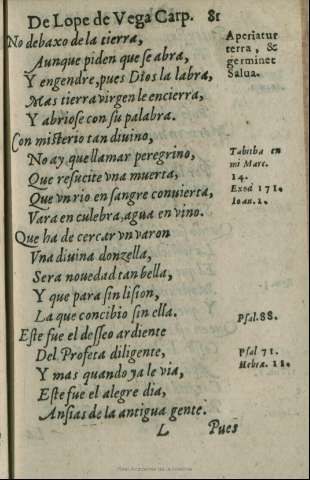 De Lope de Vega Carp. 81
No debaxo de la tierra,
Aunque piden que se abra,
Y engendre, pues Dios la labra,
Mas tierra virgen le encierra,
Y abriose con su palabra.
Con misterio tan diuino,
No ay que llamar peregrino,
Que resucite vna muerta,
Que vn rio en sangre conuierta,
Vara en culebra, agua en vino.
Que ha de cercar vn varon
Vna diuina donzella,
Sera nouedad tan bella,
Y que para sin lision,
La que concibio sin ella.
Este fue el desseo ardiente
Del Profeta diligente,
Y mas quando ya le via,
Este fue el alegre dia,
Ansias de la antigua gente.
L Pues
Aperiatur
terra, &
germinet
Salua.
Tabitha en
mi Marc.
14.
Exod 17 1.
Ioan. 1.
Psal. 88.
Psal 71.
Hebra. 11.
Real Academia de la Historia